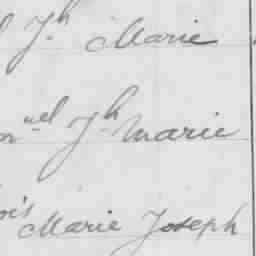 Jh Marie
nel Jh Marie
ois Marie Joseph